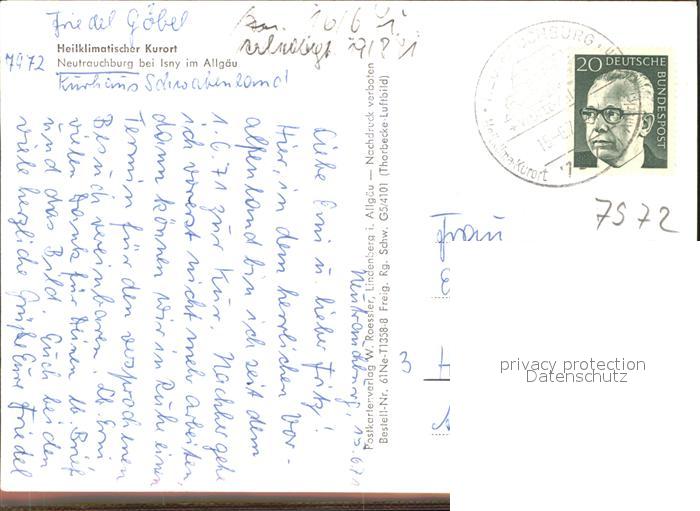 Friedel Göbel
Heilklimatischer Kurort
7972 Neutrauchburg bei Isny im Allgäu
Kurhaus Schwabenland
erledigt
Neutrauchburg, 15.6.71
Liebe Emi u. lieber Fritz!
Hier, in dem herrlichen Vor-
alpenland bin ich seit dem
1.6.71 zur Kur. Nachher gehe
ich vorerst nicht mehr arbeiten,
dann können wir in Ruhe einen
Termin für den versprochenen
Besuch vereinbaren. Lb. Emi
vielen Dank für Deinen lb. Brief
und das Bild. Euch beiden
viele herzliche Grüße Eure Friedel
Postkartenverlag W. Roessler, Lindenberg i. Allgäu — Nachdruck verboten
Bestell-Nr. 61Ne-T1358-B Freig. Rg. Schw. G5/4101 (Thorbecke-Luftbild)
Heilklima-Kurort
20 DEUTSCHE
BUNDESPOST
7972
Frau
3
privacy protection
Datenschutz